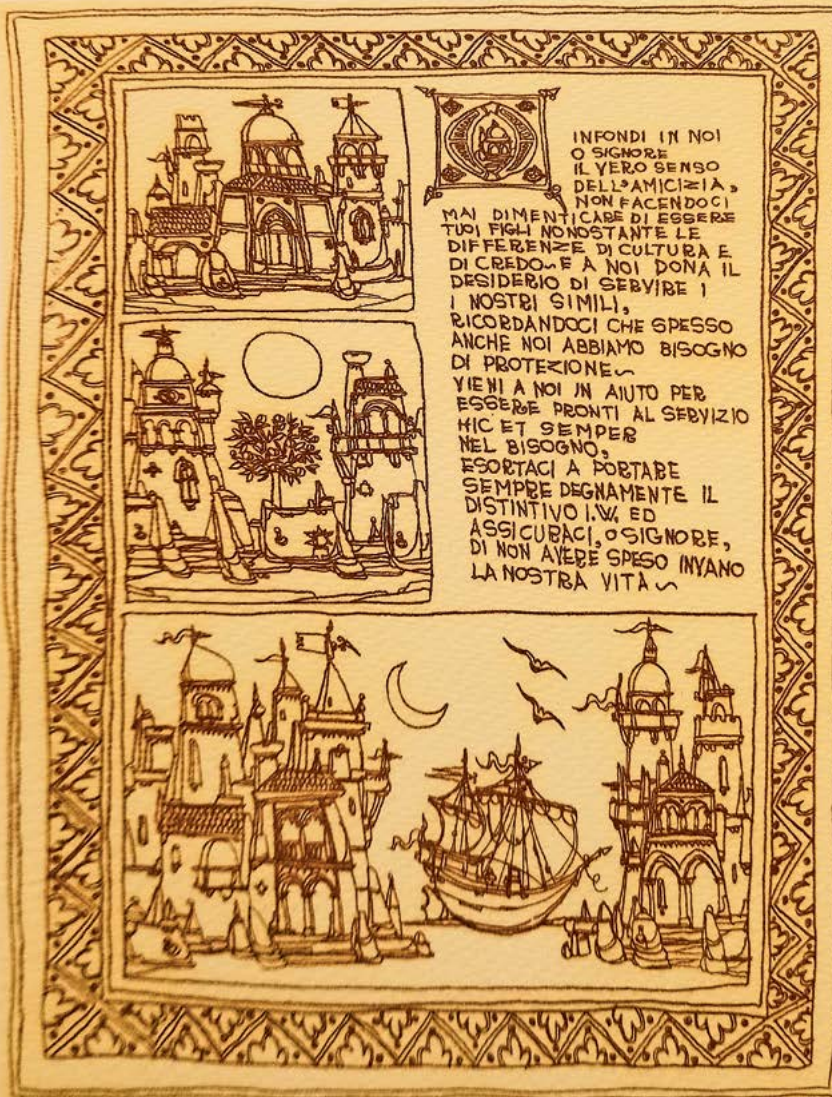 INFONDI IN NOI
O SIGNORE
IL VERO SENSO
DELL'AMICIZIA,
NON FACENDOCI
MAI DIMENTICARE DI ESSERE
TUOI FIGLI NONOSTANTE LE
DIFFERENZE DI CULTURA E
DI CREDO~E A NOI DONA IL
DESIDERIO DI SERVIRE I
I NOSTRI SIMILI,
RICORDANDOCI CHE SPESSO
ANCHE NOI ABBIAMO BISOGNO
DI PROTEZIONE~
VIENI A NOI IN AIUTO PER
ESSERE PRONTI AL SERVIZIO
HIC ET SEMPER
NEL BISOGNO,
ESORTACI A PORTARE
SEMPRE DEGNAMENTE IL
DISTINTIVO I.W. ED
ASSICURACI, O SIGNORE,
DI NON AVERE SPESO INVANO
LA NOSTRA VITA~